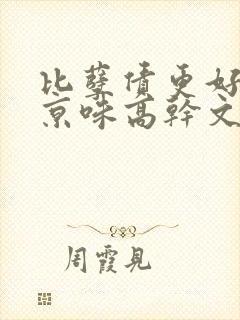 比孽债更好
京味高幹文
周霞見